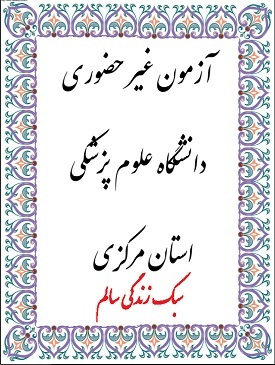 آزمون غیر حضوری
دانشگاه علوم پزشکی
استان مرکزی
سبک زندگی سالم